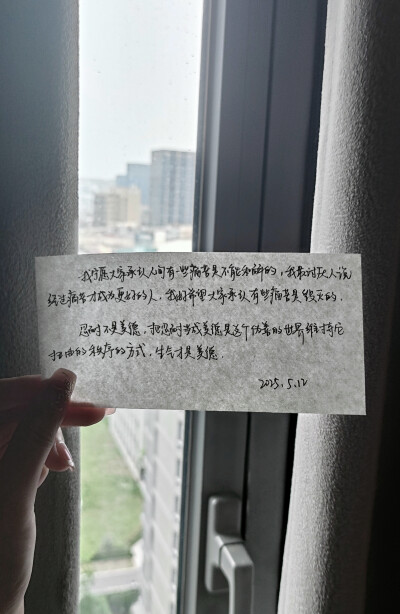 我宁愿大家承认人间有一些痛苦是不能和解的，我最讨厌人说
经过痛苦才成为更好的人，我好希望大家承认有些痛苦是毁灭的，
忍耐不是美德，把忍耐当成美德是这个伪善的世界维持它
扭曲的秩序的方式，生气才是美德。
2025.5.12